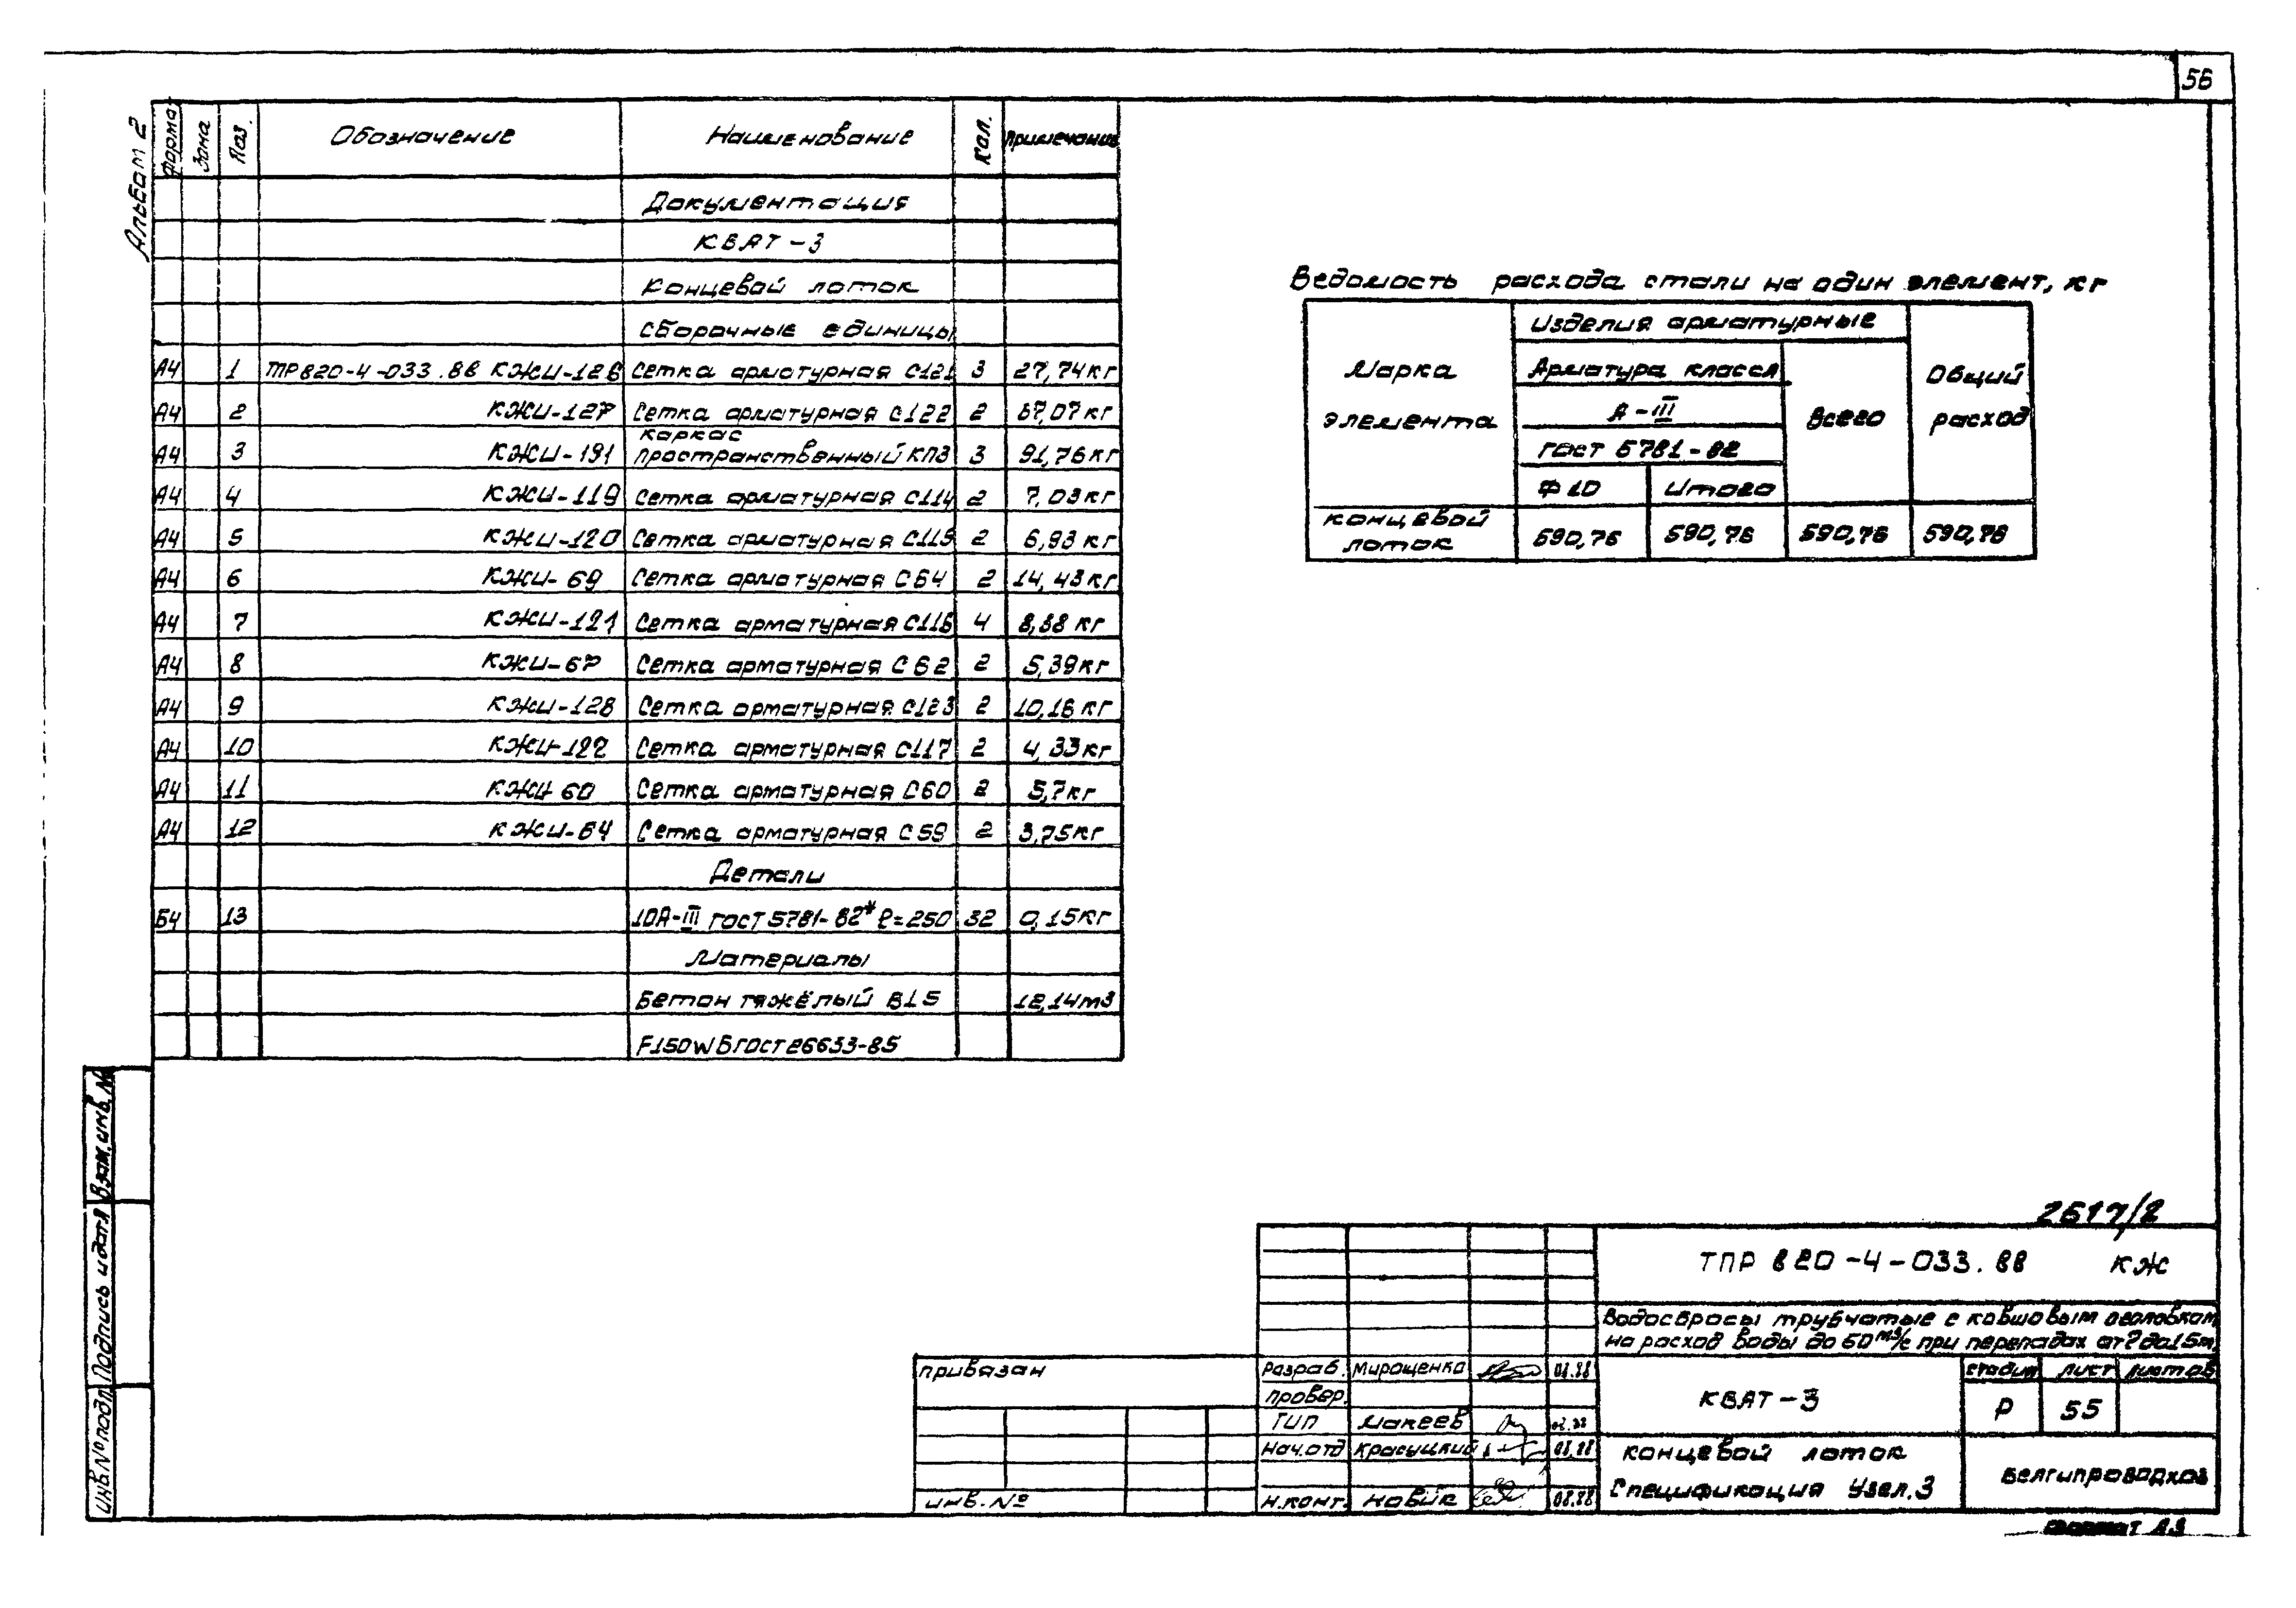 56
Альбом 2
Форма Зона Поз. Обозначение Наименование Кол. Примечание
Документация
КВАТ-3
Концевой лоток
Сборочные единицы
А4 1 ТР820-4-033.88 КЖИ-126 Сетка арматурная С121 3 27,74кг
А4 2 КЖИ-127 Сетка арматурная С122 2 67,07кг
А4 3 КЖИ-131 каркас пространственный КП3 3 91,76кг
А4 4 КЖИ-119 Сетка арматурная С114 2 7,03кг
А4 5 КЖИ-120 Сетка арматурная С115 2 6,93кг
А4 6 КЖИ-69 Сетка арматурная С64 2 14,43кг
А4 7 КЖИ-121 Сетка арматурная С116 4 8,88 кг
А4 8 КЖИ-67 Сетка арматурная С62 2 5,39кг
А4 9 КЖИ-128 Сетка арматурная С123 2 10,16 кг
А4 10 КЖИ-122 Сетка арматурная С117 2 4,33кг
А4 11 КЖИ 60 Сетка арматурная С60 2 5,7кг
А4 12 КЖИ-64 Сетка арматурная С59 2 3,75кг
Детали
Б4 13 10А-III ГОСТ 5781-82* ℓ=250 32 0,15кг
Материалы
Бетон тяжёлый В15 12,14м3
F150W6 ГОСТ 26633-85
Ведомость расхода стали на один элемент, кг
Марка элемента
Изделия арматурные
Арматура класса
А-III
ГОСТ 5781-82
Ф10 Итого
Всего
Общий расход
концевой лоток 590,76 590,76 590,76 590,76
Взам. инв. №
Подпись и дата
Инв. № подл.
2617/2
ТПР 820-4-033.88 КЖ
Водосбросы трубчатые с ковшовым оголовком
на расход воды до 60 м3/с при перепадах от 2 до 15м
Привязан
инв. №
Разраб. Мирощенко 08.88
Провер.
ГИП Макеев
Нач.отд Красуцкий 08.88
Н.конт. Новик 08.88
КВАТ-3
стадия лист листов
Р 55
концевой лоток
Спецификация Узел.3
Белгипроводхоз
Формат А3